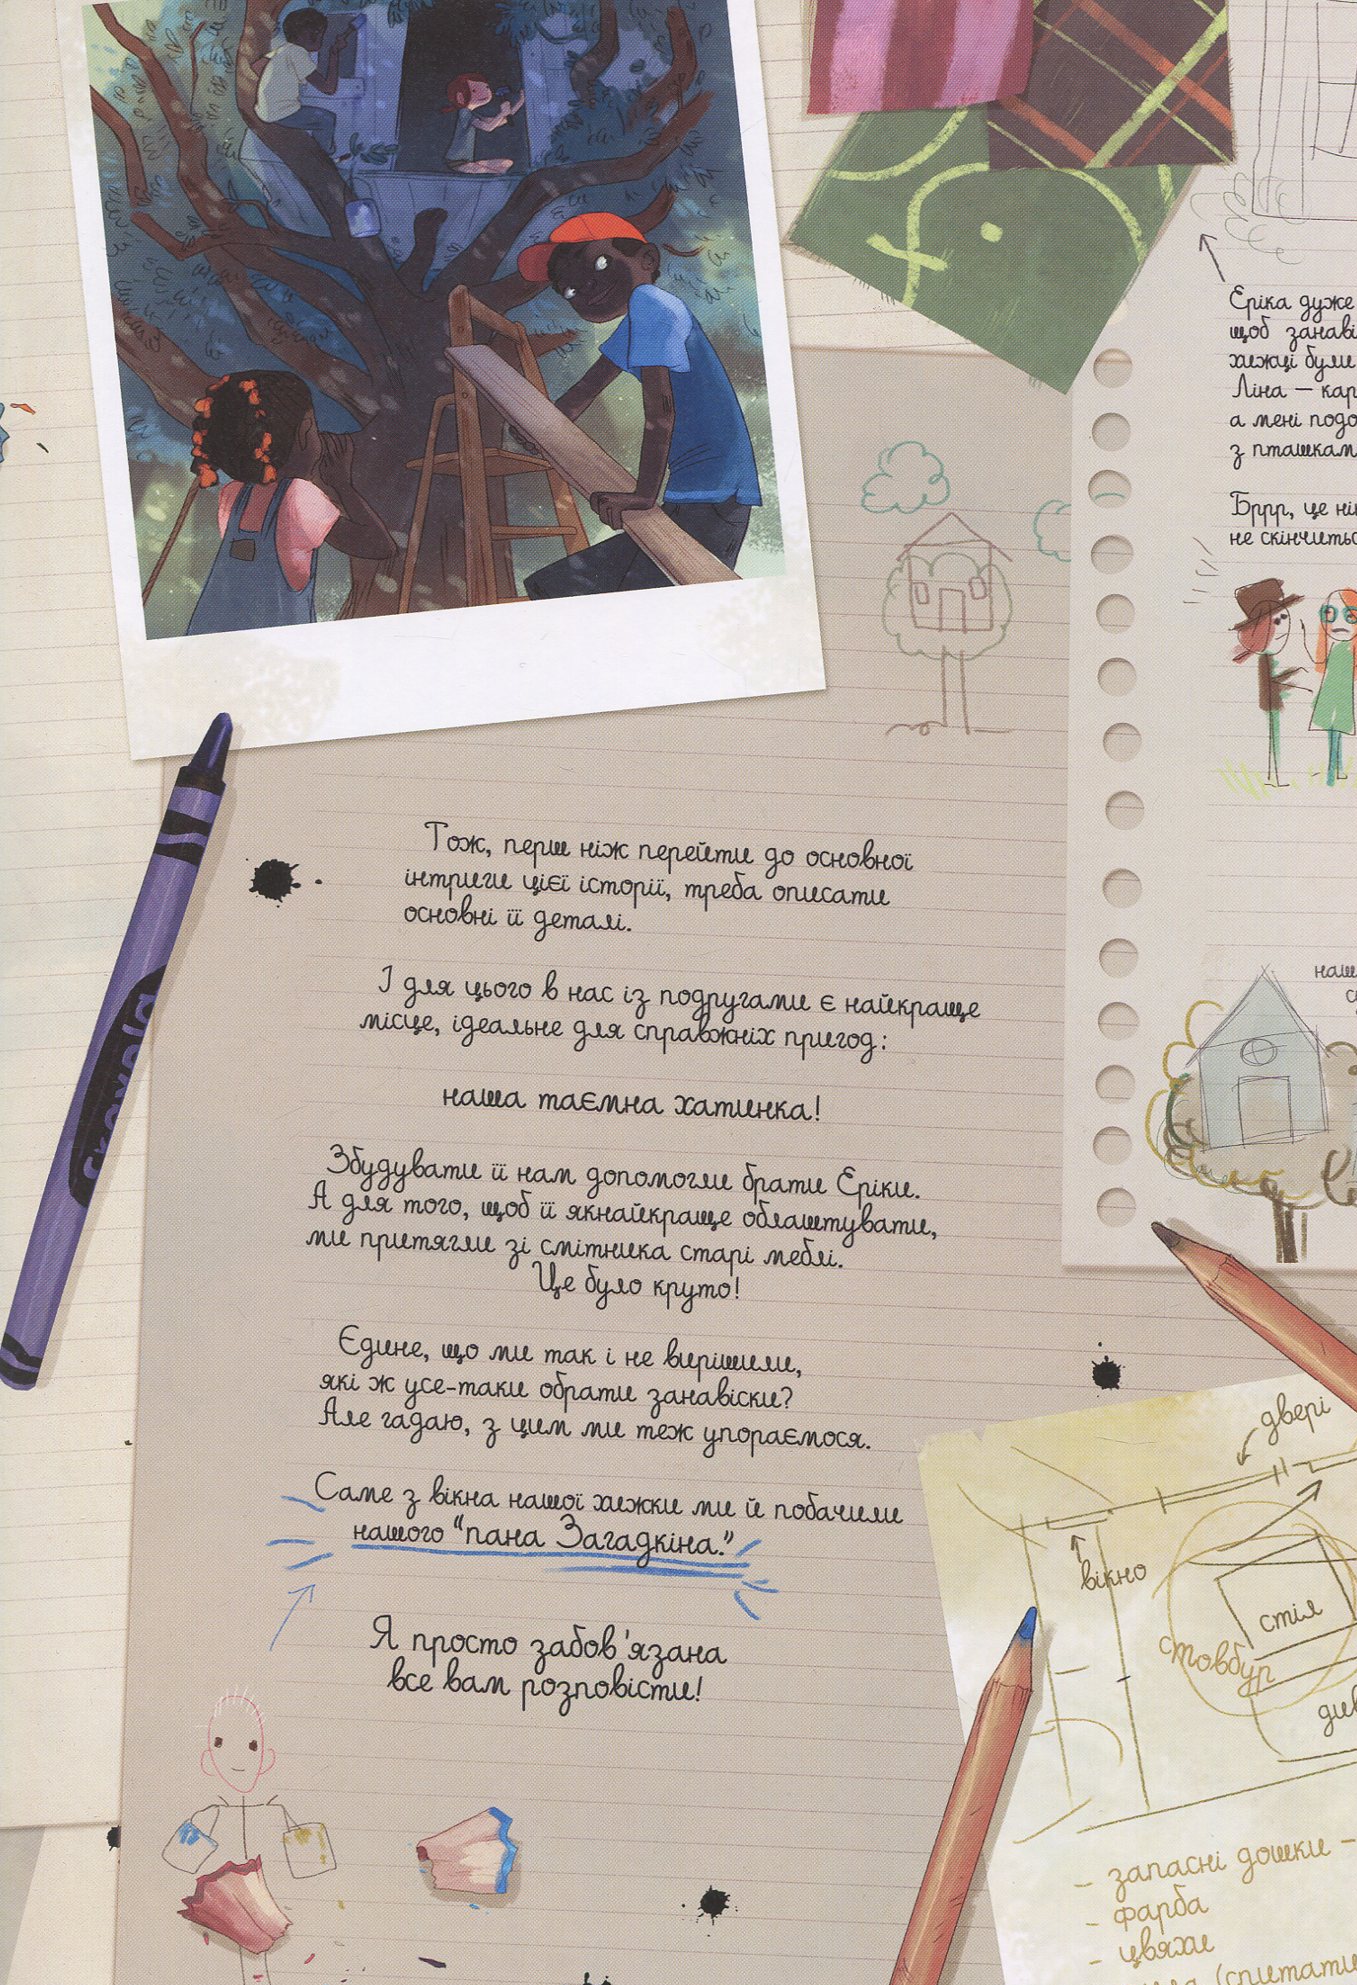 Еріка дуже
щоб
хижці були
Ліна —
а мені
з
Бррр, це
не
Тож, перш ніж перейти до основної
інтриги цієї історії, треба описати
основні її деталі.
І для цього в нас із подругами є найкраще
місце, ідеальне для справжніх пригод:
наша таємна хатинка!
Збудувати її нам допомогли брати Еріки.
А для того, щоб її якнайкраще облаштувати,
ми притягли зі смітника старі меблі.
Це було круто!
Єдине, що ми так і не вирішили,
які ж усе-таки обрати занавіски?
Але гадаю, з цим ми теж упораємося.
Саме з вікна нашої хижки ми й побачили
нашого "пана Загадкіна."
Я просто забов'язана
все вам розповісти!
двері
вікно
стіл
стовбур
- запасні дошки -
- фарба
- цвяхи